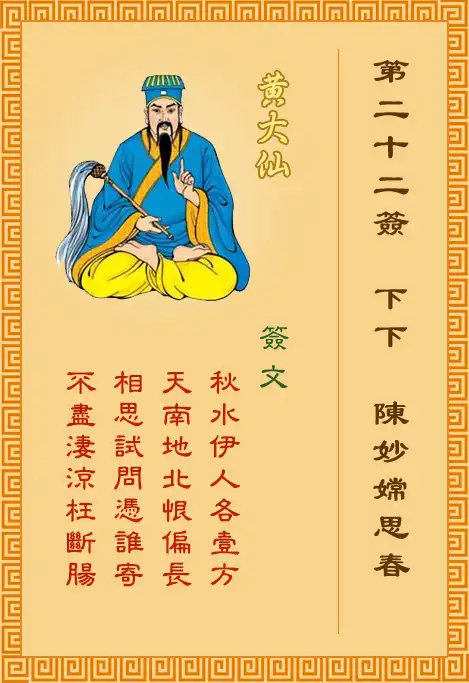 第二十二簽 下下 陳妙嫦思春
黃大仙
簽文
秋水伊人各壹方
天南地北恨偏長
相思試問憑誰寄
不盡淒涼枉斷腸